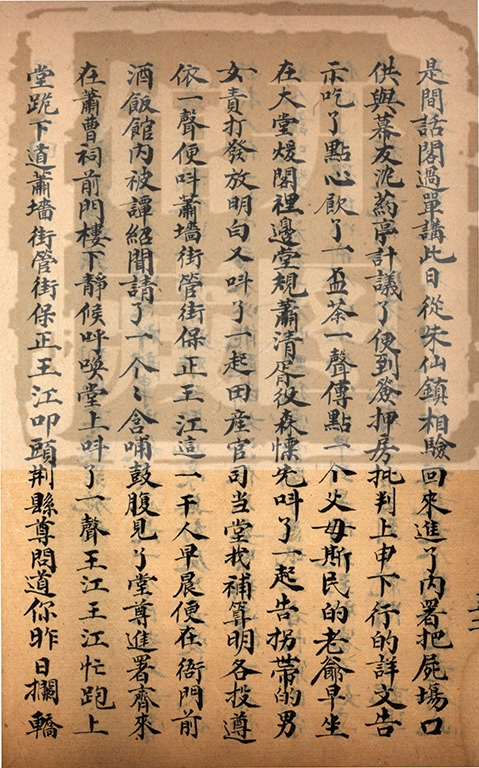 是間話閣過單講此日從朱仙鎮相驗回來進了內署把屍場口
供與幕友沈葯亭計議了便到簽押房批判上申下行的詳文告
示吃了點心飲了一盃茶一聲傳點一个父母斯民的老爺早坐
在大堂煖閣裡邊堂規蕭清胥役森慄先呌了一起告拐帶的男
女責打發放明白又呌了一起田産官司当堂找補算明各投遵
依一聲便呌蕭墻街管街保正王江這一干人早晨便在衙門前
酒飯館內被譚紹聞請了一个〻含哺鼓腹見了堂尊進署齊來
在蕭曹祠前門樓下靜候呼喚堂上呌了一聲王江王江忙跑上
堂跪下道蕭墻街管街保正王江叩頭荆縣尊問道你昨日攔轎